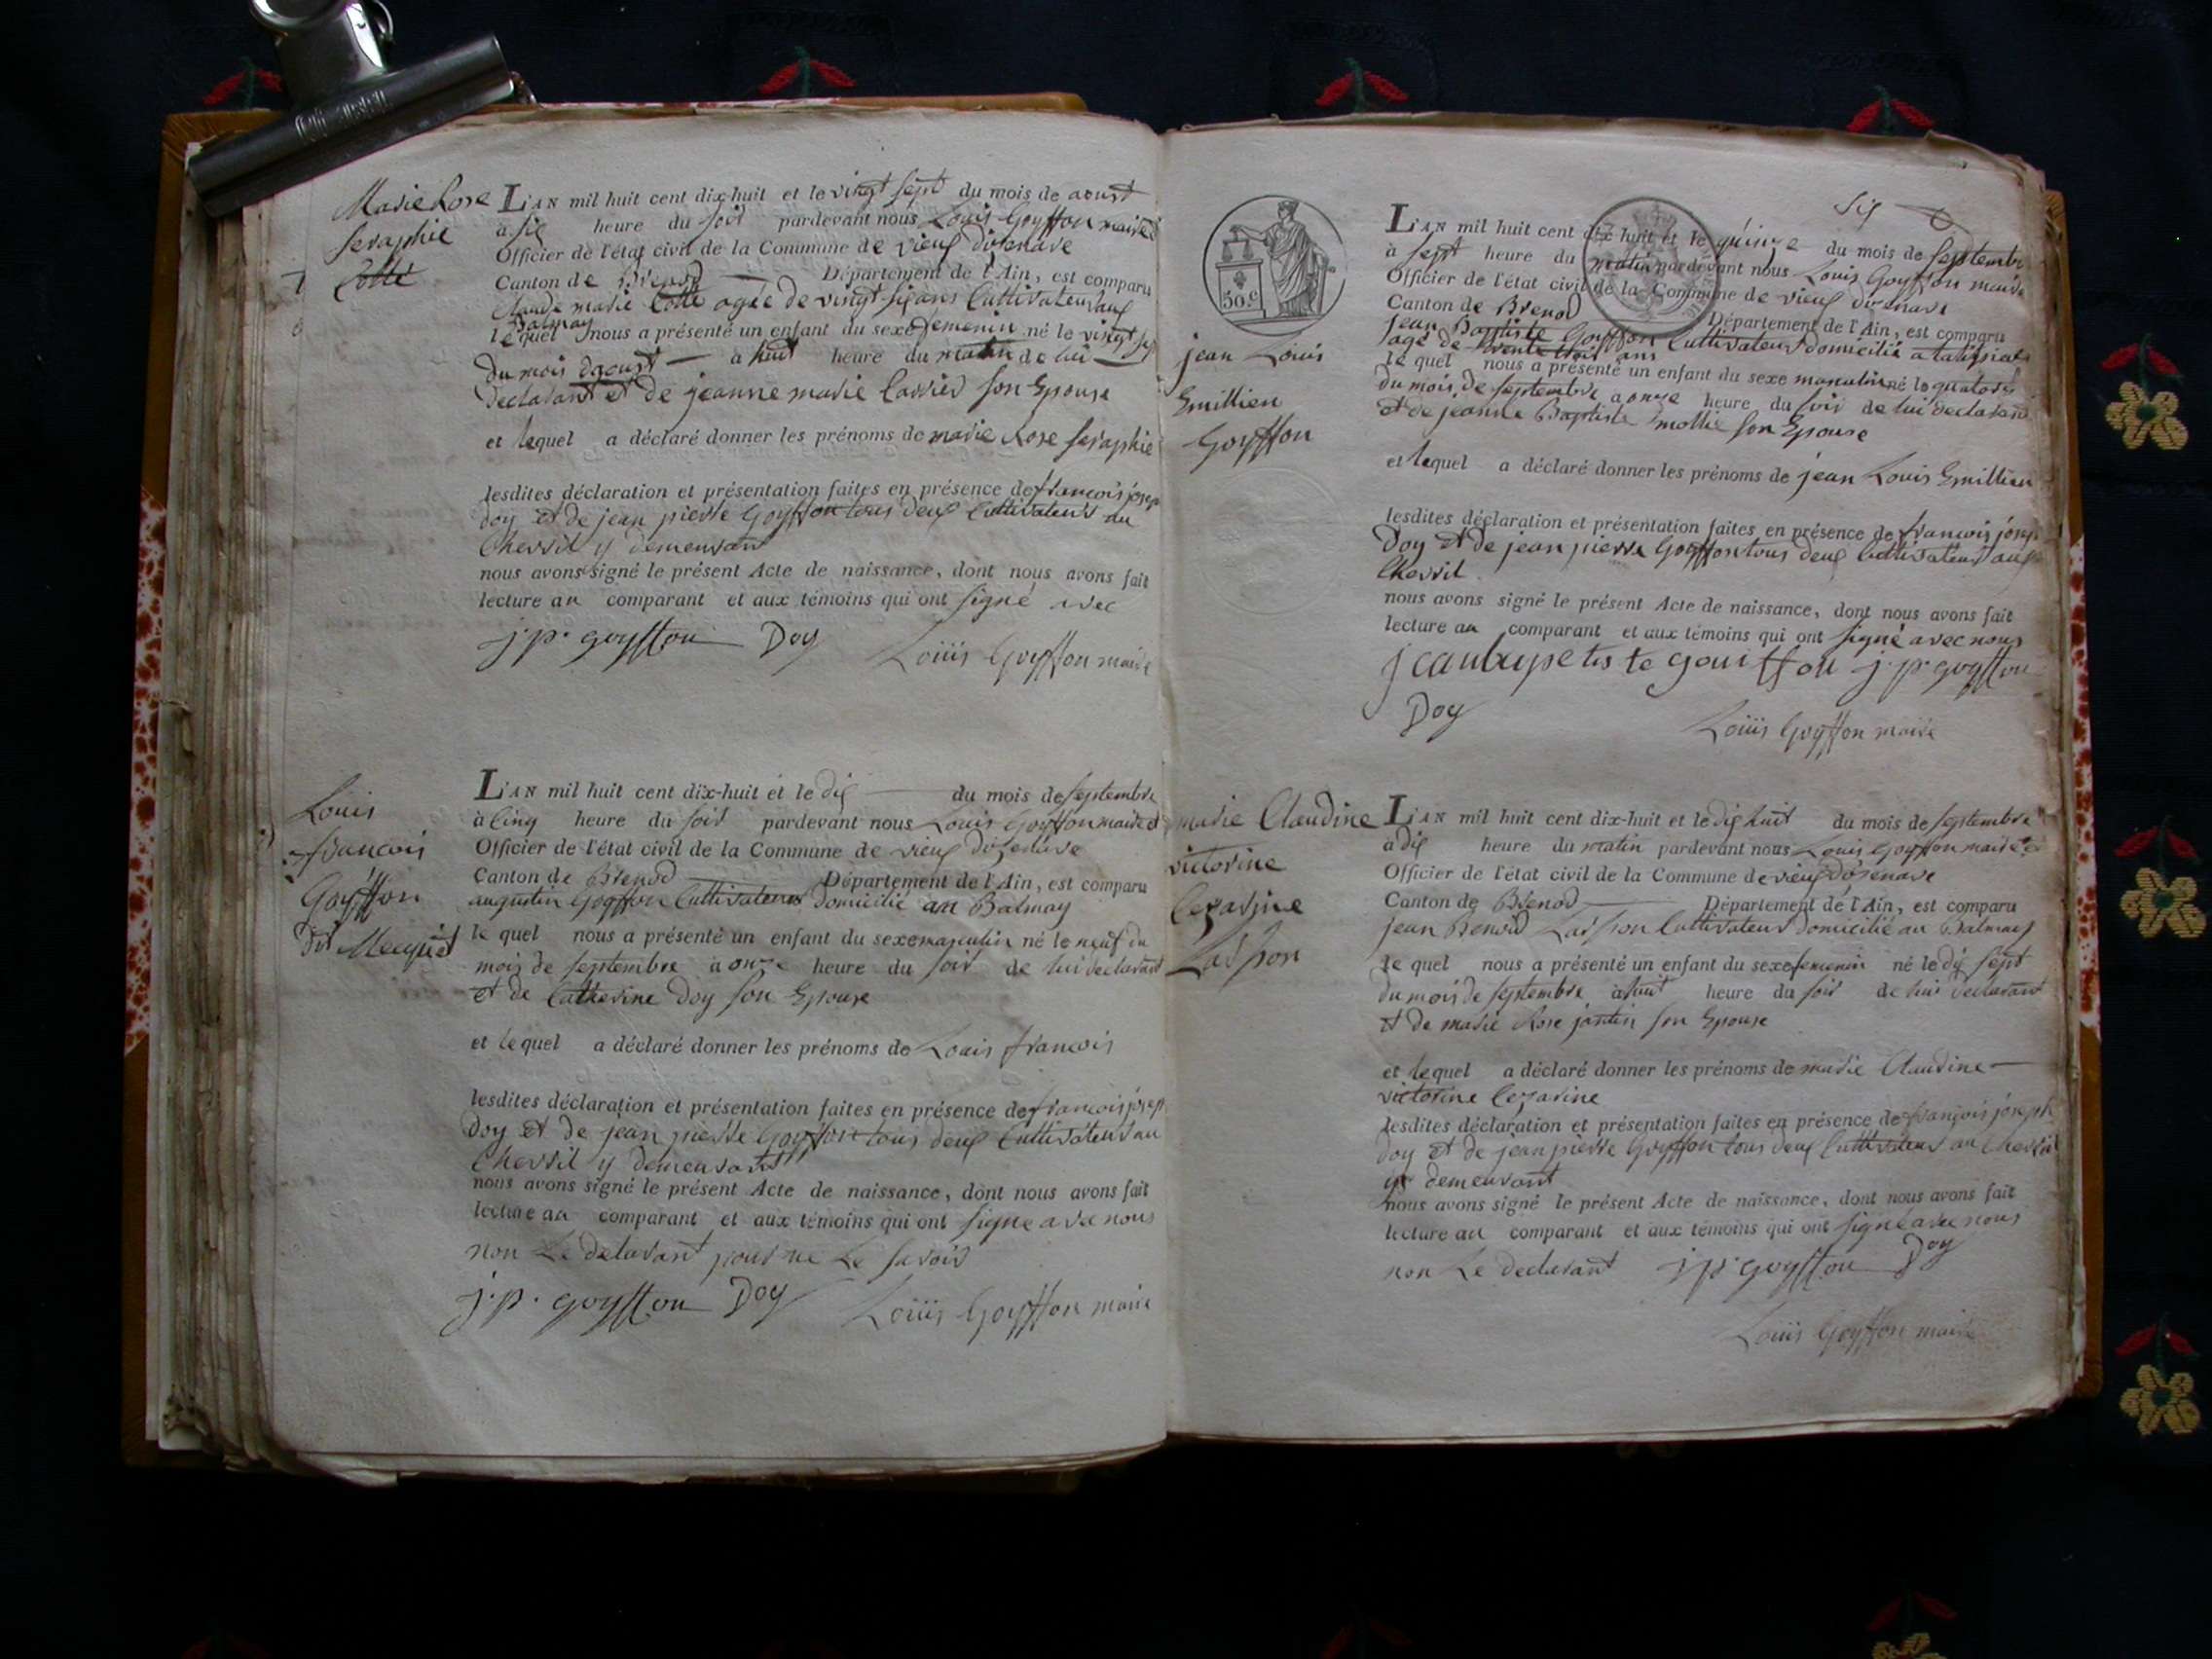 Marie Rose
Seraphie
Cotte
L'AN mil huit cent dix-huit et le vingt sept du mois de aoust
à six heure du soir pardevant nous Louis Goyffon maire et
Officier de l'état civil de la Commune de vieux dizenave
Canton de Brenod Département de l'Ain, est comparu
Claude marie Cotte agée de vingt six ans Cultivateur aux
Balmay
le quel nous a présenté un enfant du sexe femenin né le vingt sept
du mois daoust à huit heure du matin de lui
declarant et de jeanne marie Carrier son Epouse
et lequel a déclaré donner les prénoms de marie Rose seraphie
lesdites déclaration et présentation faites en présence de francois joseph
Doy et de jean pierre Goyffon tous deux Cultivateurs au
Chevril y demeurant
nous avons signé le présent Acte de naissance, dont nous avons fait
lecture au comparant et aux témoins qui ont signé avec
j. p. goyffon Doy Louis Goyffon maire
Louis
francois
Goyffon
dit Mecquet
L'AN mil huit cent dix-huit et le dix du mois de septembre
à Cinq heure du soir pardevant nous Louis Goyffon maire et
Officier de l'état civil de la Commune de vieux dizenave
Canton de Brenod Département de l'Ain, est comparu
augustin Goyffon Cultivateur domicilié au Balmay
le quel nous a présenté un enfant du sexe masculin né le neuf du
mois de septembre à onze heure du soir de lui declarant
et de Catherine Doy son Epouse
et lequel a déclaré donner les prénoms de Louis francois
lesdites déclaration et présentation faites en présence de francois joseph
Doy et de jean pierre Goyffon tous deux Cultivateurs au
Chevril y demeurant
nous avons signé le présent Acte de naissance, dont nous avons fait
lecture au comparant et aux témoins qui ont signé avec nous
non Le delarant pour ne Le savoir
j. p. goyffon Doy Louis Goyffon maire
six
50.c
jean Louis
Emillien
Goyffon
L'AN mil huit cent dix-huit et le quinze du mois de septembre
à sept heure du matin pardevant nous Louis Goyffon maire
Officier de l'état civil de la Commune de vieux dizenave
Canton de Brenod Département de l'Ain, est comparu
jean Baptiste Goyffon Cultivateur domicilié a
agé de trente trois ans
le quel nous a présenté un enfant du sexe masculin né le quatorze
du mois de septembre a onze heure du soir de lui declarant
et de jeanne Baptiste Emollie son Epouse
et lequel a déclaré donner les prénoms de jean Louis Emillien
lesdites déclaration et présentation faites en présence de francois joseph
Doy et de jean pierre Goyffon tous deux Cultivateurs au
Chevril
nous avons signé le présent Acte de naissance, dont nous avons fait
lecture au comparant et aux témoins qui ont signé avec nous
jeanbapetiste gouiffon j. p. goyffon
Doy Louis Goyffon maire
marie Claudine
victorine
Cezarine
L'AN mil huit cent dix-huit et le dix huit du mois de septembre
à dix heure du matin pardevant nous Louis Goyffon maire et
Officier de l'état civil de la Commune de vieux dizenave
Canton de Brenod Département de l'Ain, est comparu
jean Benoid Cultivateur domicilié au Balmay
le quel nous a présenté un enfant du sexe femenin né le dix sept
du mois de septembre à huit heure du soir de lui declarant
et de marie Rose jantin son Epouse
et lequel a déclaré donner les prénoms de marie Claudine
victorine Cezarine
lesdites déclaration et présentation faites en présence de françois joseph
Doy et de jean pierre Goyffon tous deux Cultivateurs au Chevril
y demeurant
nous avons signé le présent Acte de naissance, dont nous avons fait
lecture au comparant et aux témoins qui ont signé avec nous
non Le declarant j p goyffon Doy
Louis Goyffon maire